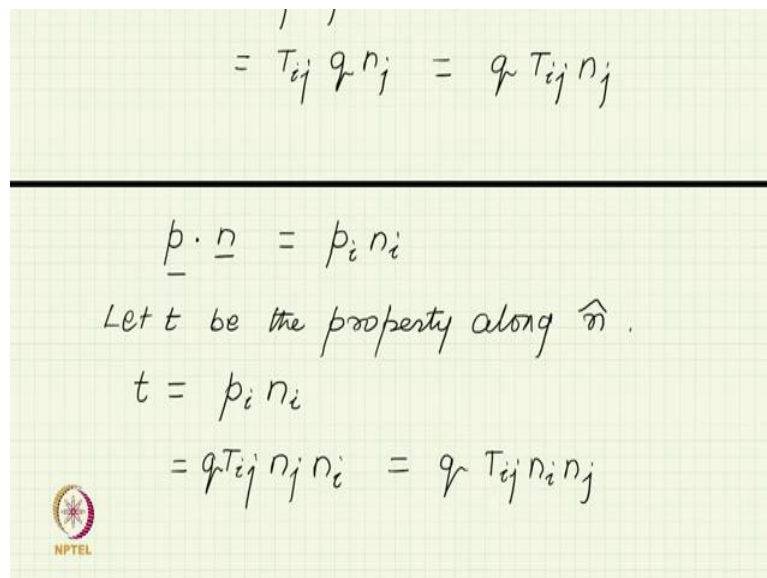 = Tij q nj = q Tij nj
p · n = pi ni
Let t be the property along n̂ .
t = pi ni
= qTij nj ni = q Tij ni nj
NPTEL